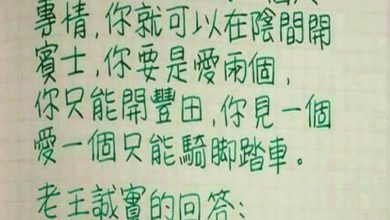 專情,你就可以在陰間開
賓士,你要是愛兩個,
你只能開豐田,你見一個
愛一個只能騎脚踏車。
老王誠實的回答: